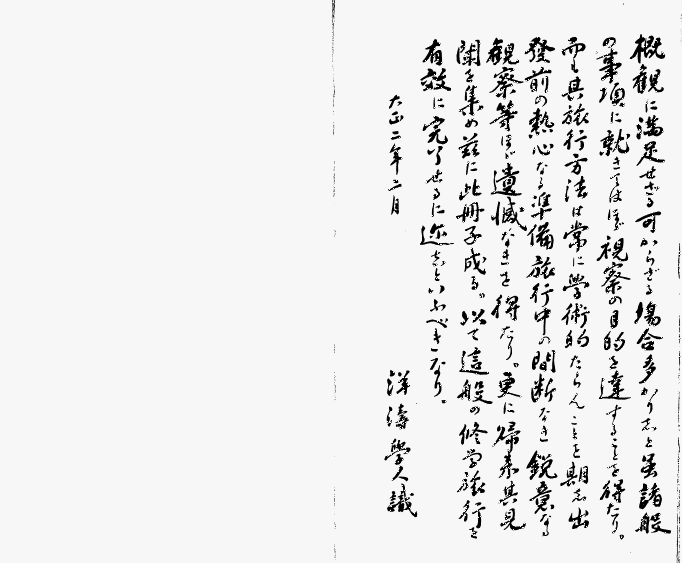 概觀に満足せざる可からざる場合多かりしと雖諸般
の事項に就きてはほぼ視察の目的を達することを得たり。
而も其旅行方法は常に学術的たらんことを期し出
發前の熱心なる準備旅行中の間断なき鋭意なる
觀察等ほぼ遺憾なきを得たり。更に帰来其見
聞を集め茲に此冊子成る。以て這般の修学旅行を
有效に完了せるに近しといふべきなり。
大正二年二月
洋濤學人識